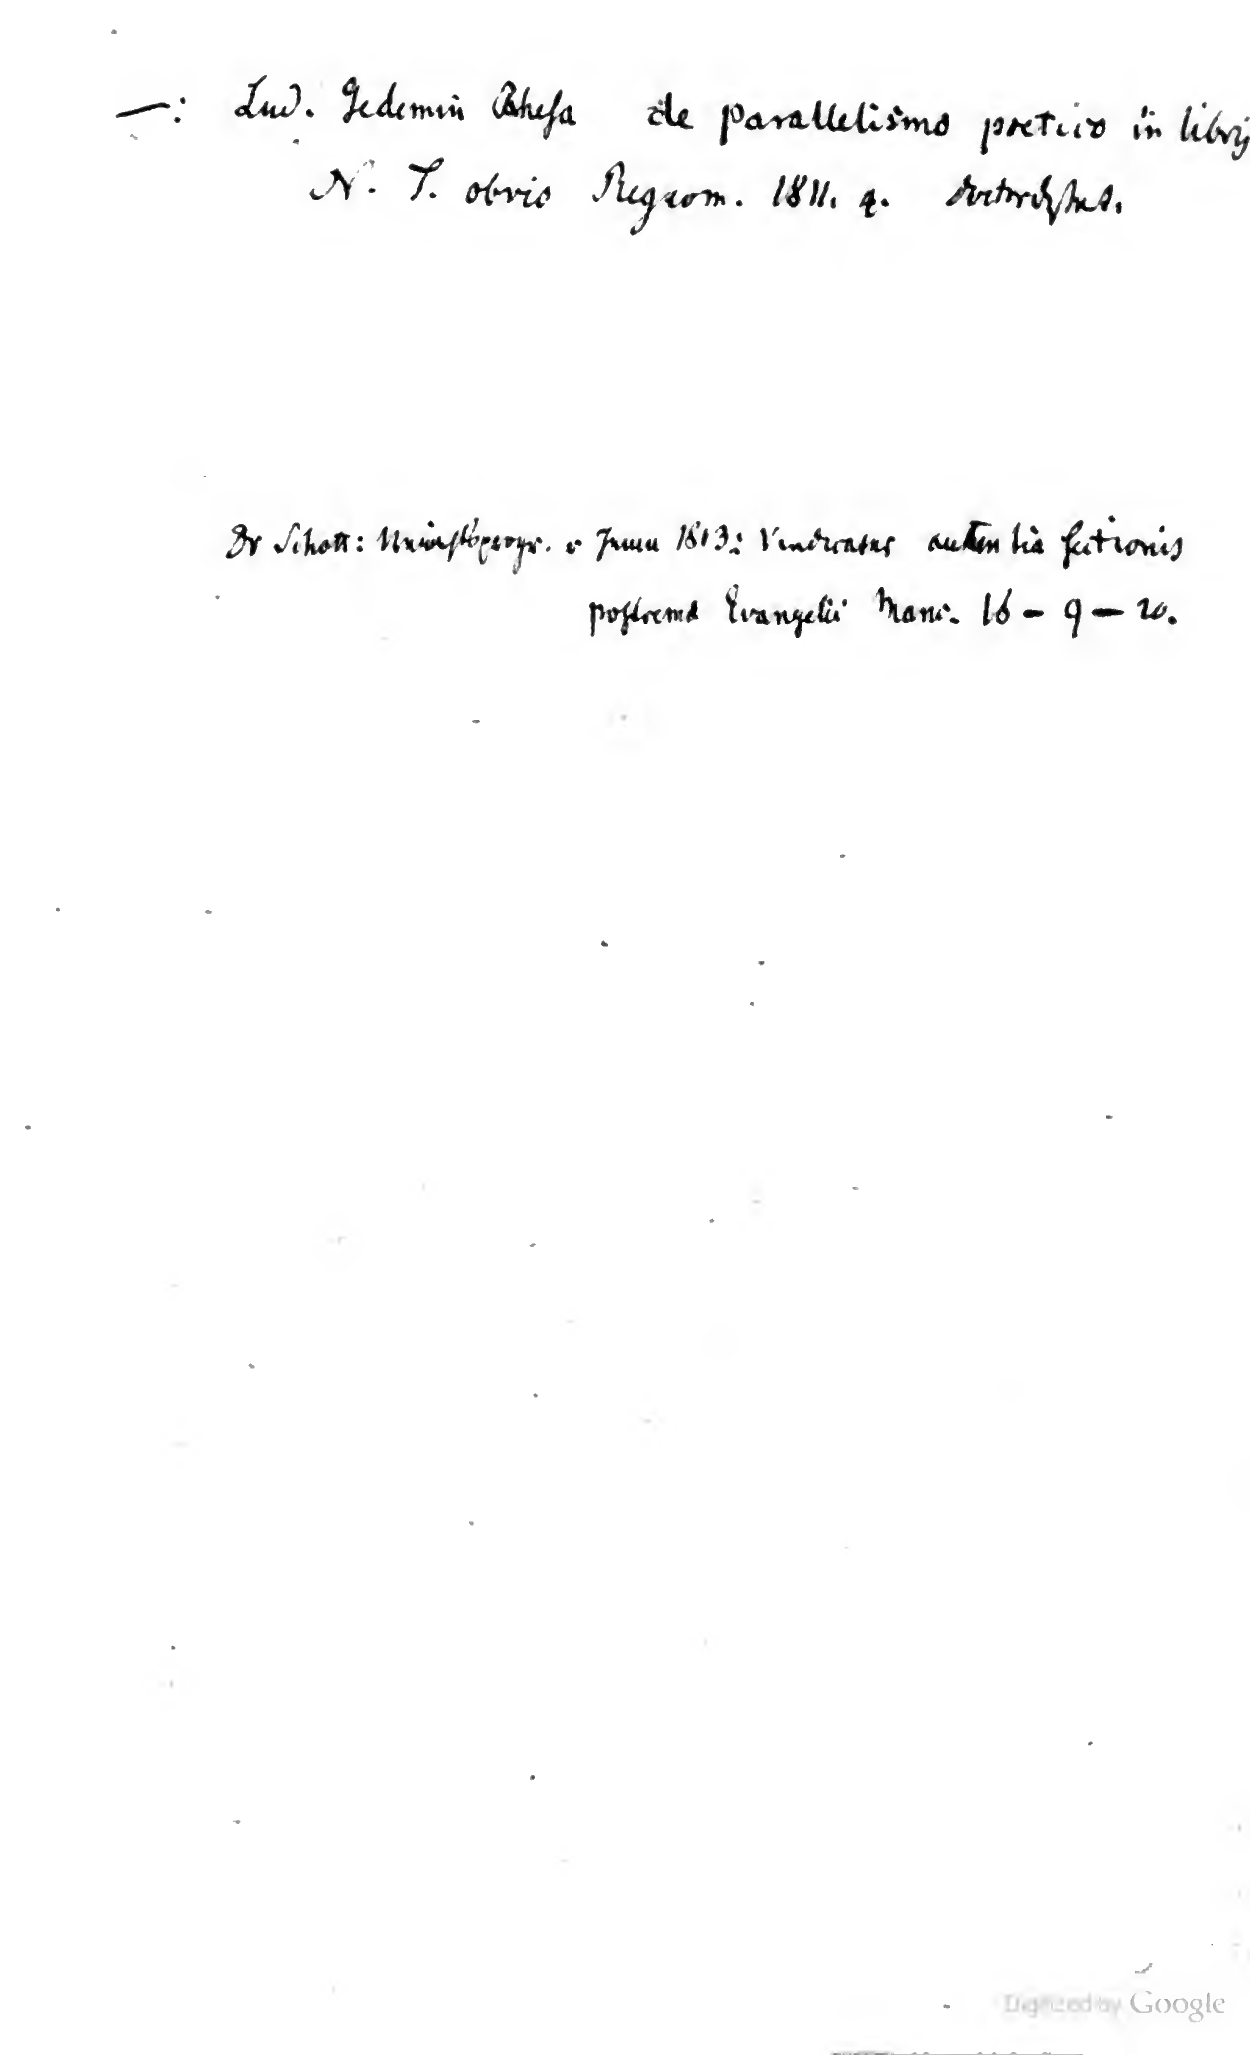 —: Lud. Gedemin Rhesa de parallelismo poetico in libris
N. T. obvio Regiom. 1811. 4.
Dr Schott: v Jena 1813: Vindicatur autentia sectionis
postrema Evangelii Marc. 16 – 9 – 20.
Digitized by Google